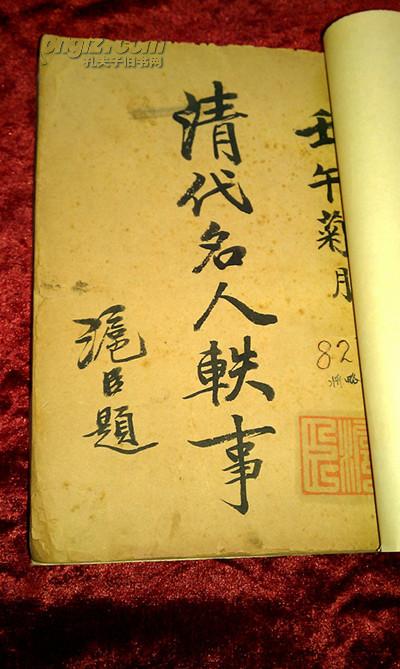 壬午菊月
清代名人軼事
滬臣題
82
kongfz.com
孔夫子旧书网